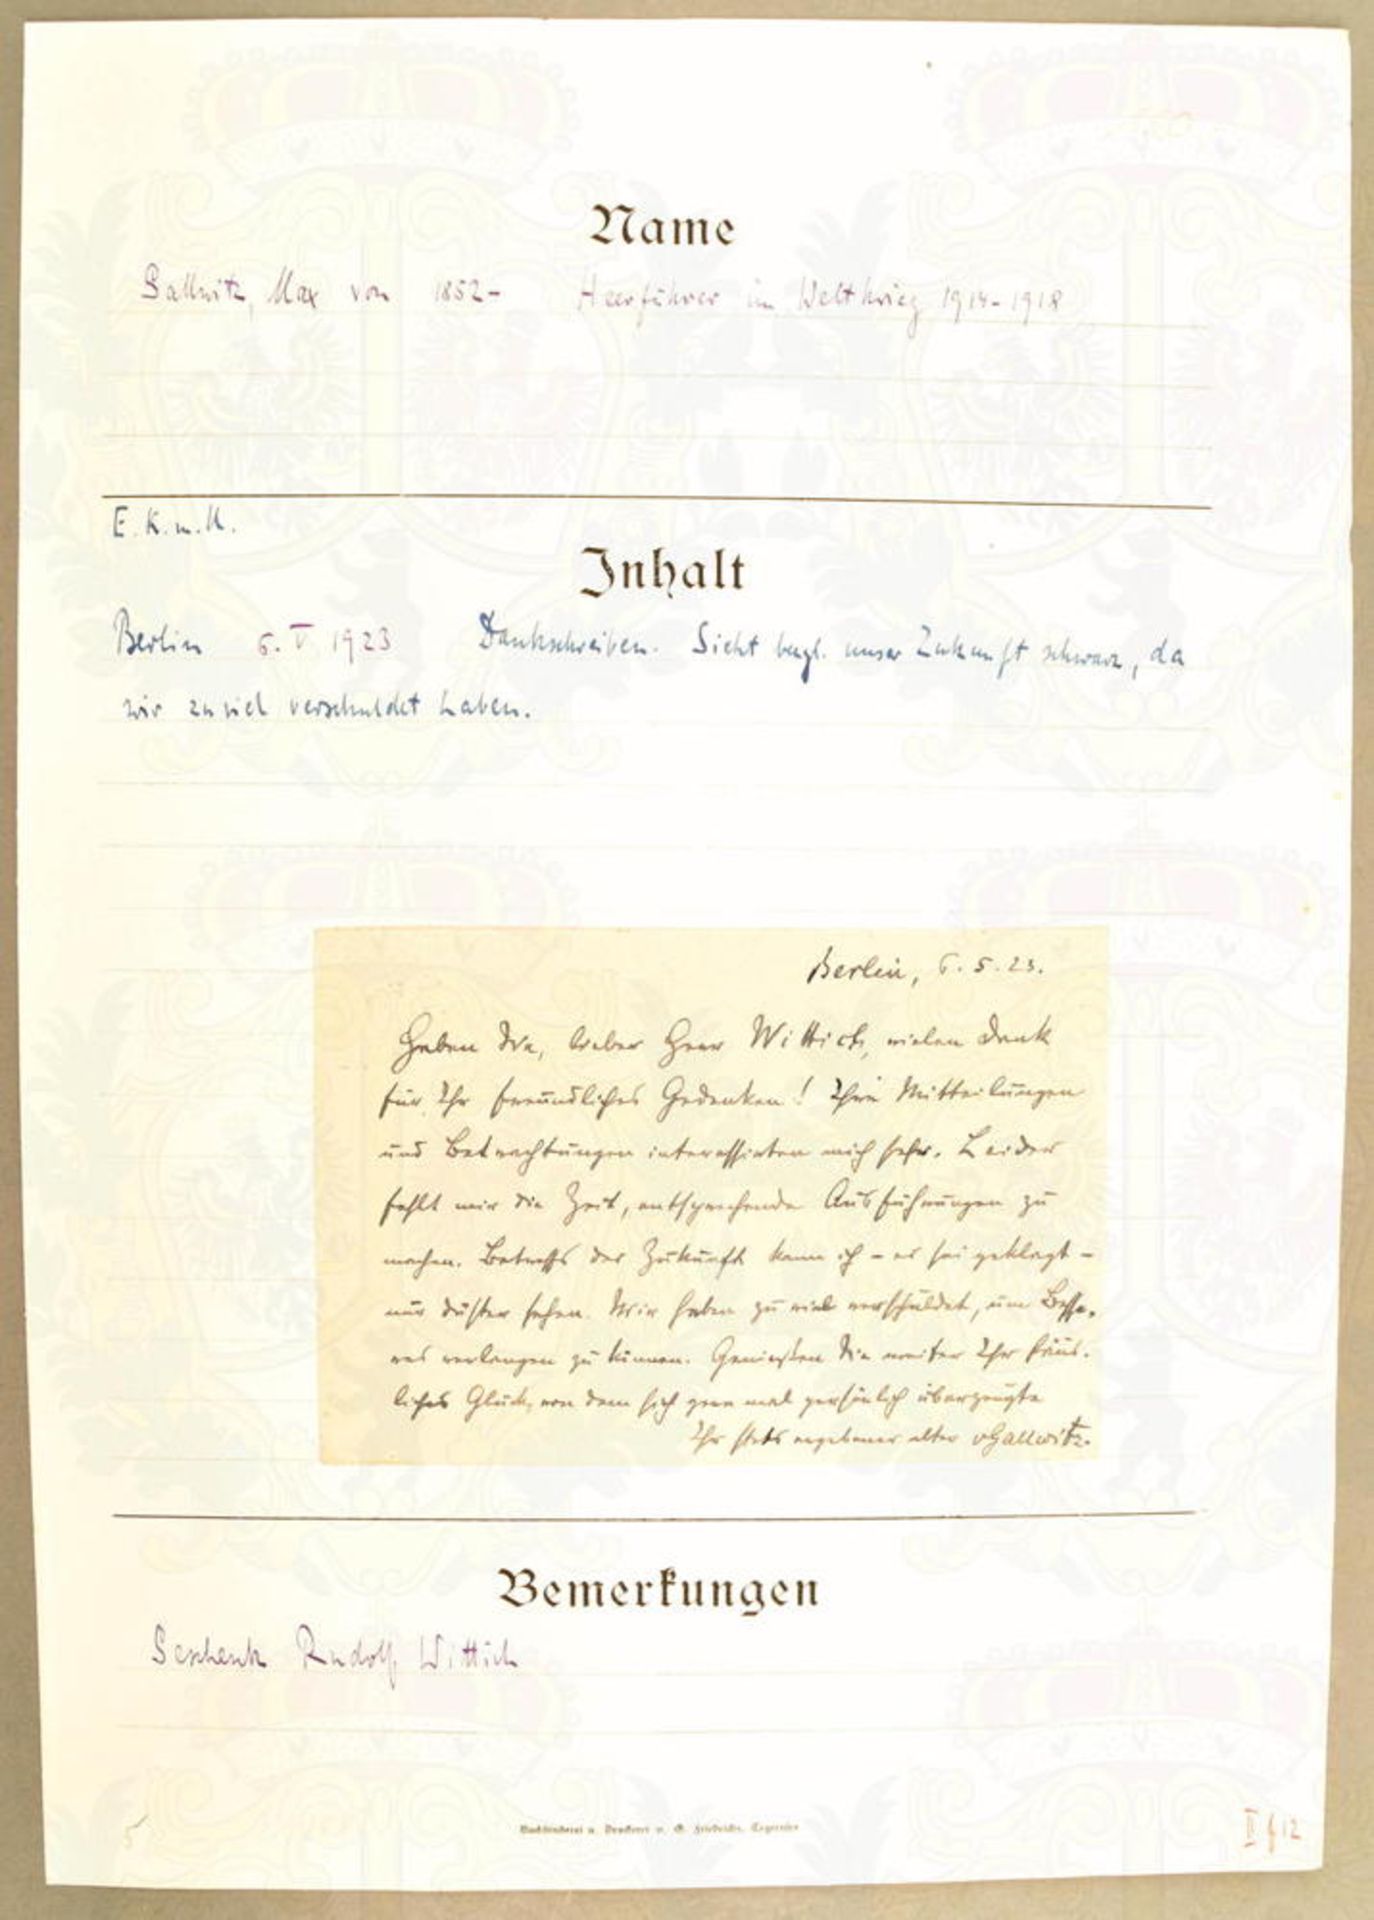 Name
Gallwitz, Max von 1852- Heerführer im Weltkrieg 1914-1918
E. K. m. U.
Inhalt
Berlin 6. V. 1923 Dankschreiben. Sieht bezgl. unser Zukunft schwarz, da
wir zu viel verschuldet haben.
Berlin, 6. 5. 23.
Haben Sie, lieber Herr Wittich, vielen Dank
für Ihr freundliches Gedenken! Ihre Mitteilungen
und Betrachtungen interessierten mich sehr. Leider
fehlt mir die Zeit, entsprechende Ausführungen zu
machen. Betreffs der Zukunft kann ich – es sei geklagt –
nur düster sehen. Wir haben zu viel verschuldet, um Besse-
res verlangen zu können. Genießen Sie weiter Ihr häus-
liches Glück, von dem sich gern mal persönlich überzeugte
Ihr stets ergebener alter vGallwitz.
Bemerkungen
Geschenk Rudolf Wittich
Buchbinderei u. Druckerei v. G. Friedrichs, Tegernsee
5
II f 12